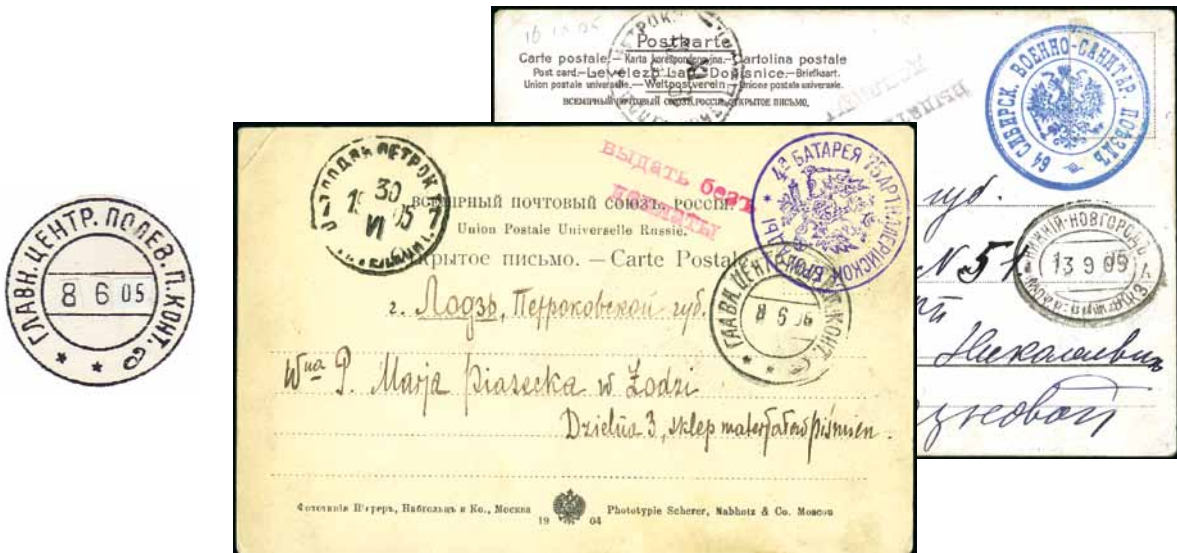 ГЛАВН. ЦЕНТР. ПОЛЕВ. П. КОНТ.
8 6 05
16 05
Postkarte
Carte postale.—Karta korespondencyjna.—Cartolina postale
Post card.—Levelező-Lap.—Dopisnice.—Briefkaart.
Union postale universelle.—Weltpostverein.—Unione postale universale.
ВСЕМІРНЫЙ ПОЧТОВЫЙ СОЮЗЪ. РОССІЯ. ОТКРЫТОЕ ПИСЬМО.
64 СИБИРСК. ВОЕННО-САНИТАР. ПОѢЗДЪ
губ.
N 51
НИЖНІЙ-НОВГОРОДЪ
13 9 05
ЛОДЗЬ ПЕТРОК.
30
VI
выдать безъ
доплаты
4я БАТАРЕЯ 25 АРТИЛЛЕРІЙСКОЙ БРИГАДЫ
ВСЕМІРНЫЙ ПОЧТОВЫЙ СОЮЗЪ. РОССІЯ.
Union Postale Universelle Russie.
Открытое письмо. — Carte Postale
ГЛАВН. ЦЕНТР. КОНТ.
8 6 05
г. Лодзь, Петроковской губ.
Wna P. Marja Piasecka w Łodzi
Dzielna 3, sklep materjałów piśmien.
Фототипія Шереръ, Набгольцъ и Ко., Москва
19 04
Phototypie Scherer, Nabholz & Co. Moscou